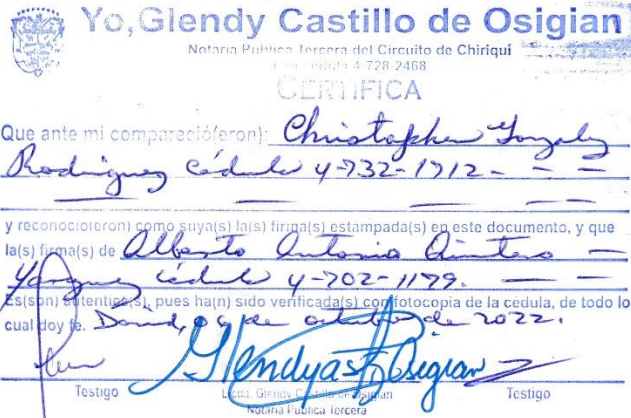 Yo, Glendy Castillo de Osigian
Notaria Pública Tercera del Circuito de Chiriquí
cédula 4-728-2468
CERTIFICA
Que ante mi compareció(eron): Christopher Gonzalez
Rodriguez cédula 4-732-1912- - -
y reconoció(eron) como suya(s) la(s) firma(s) estampada(s) en este documento, y que
la(s) firma(s) de Alberto Antonio Quintero -
cédula 4-702-1179. - -
Es(son) autentica(s), pues ha(n) sido verificada(s) con fotocopia de la cédula, de todo lo
cual doy fe. David, 06 de octubre de 2022.
Glendy Osigian
Testigo Licda. Glendy Castillo de Osigian Testigo
Notaria Pública Tercera